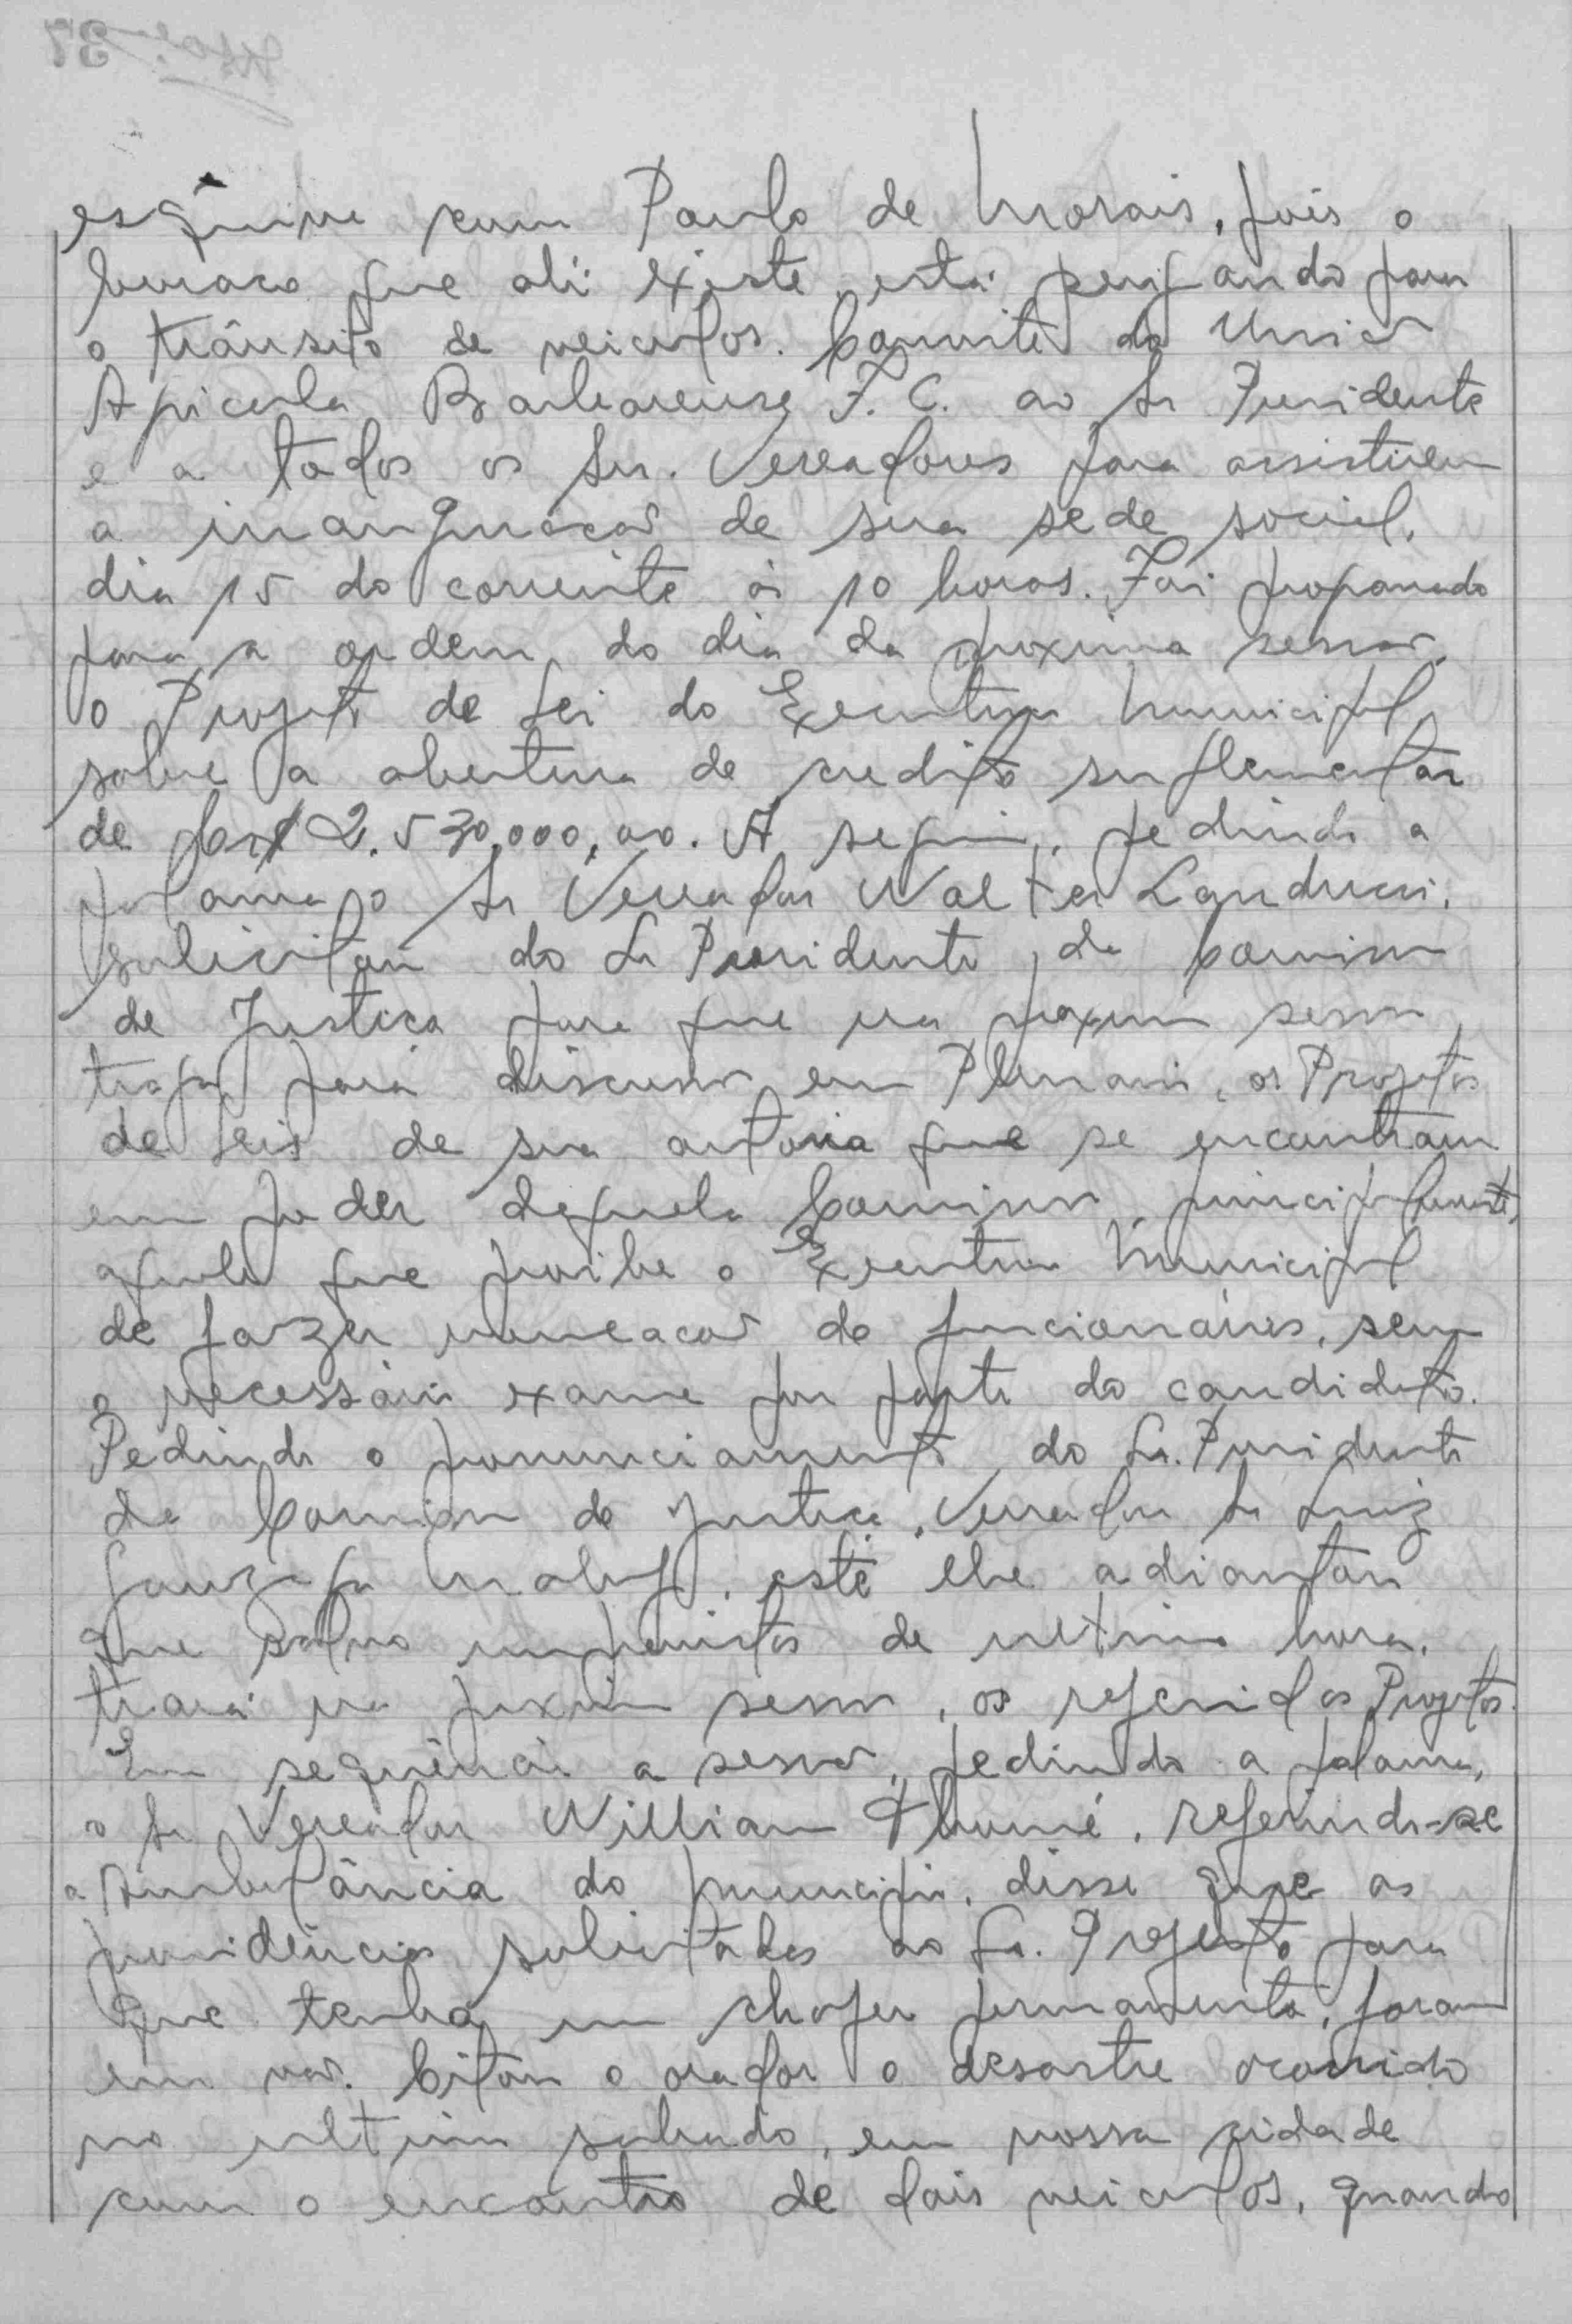 esquina com Paulo de Morais, pois o
buraco que alí existe, está perigando para
o trânsito de veiculos. Convite do União
Agricola Barbarense F. C. ao Sr Presidente
e a todos os Srs. Vereadores para assistirem
a inauguração de sua sede social,
dia 15 do corrente às 10 horas. Foi proposto
para a ordem do dia da proxima sessão,
o Projeto de Lei do Executivo Municipal,
sobre a abertura de credito suplementar
de Cr$ 2.530.000,00. A seguir, pedindo a
palavra o Sr Vereador Walter Landucci,
solicitou do Sr Presidente da Comissão
de Justiça para que na proxima sessão
traga para discussão em Plenario, os Projetos
de Leis de sua autoria que se encontram
em poder daquela Comissão, principalmente,
aquele que proibe o Executivo Municipal
de fazer nomeação de funcionários, sem
o necessário exame por parte do candidato.
Pedindo o pronunciamento do Sr. Presidente
da Comissão de Justiça, Vereador Sr Luiz
Gonzaga Maluf, este lhe adiantou
que salvo imprevistos de ultima hora,
trará na proxima sessão, os referidos Projetos.
Em sequência a sessão, pedindo a palavra,
o Sr Vereador Willian Thomé, referindo-se
a Ambulância do municipio, disse que as
providências solicitadas ao Sr. Prefeito para
que tenha um chofer permanente, foram
em vão. Citou o orador o desastre ocorrido
no ultimo sabado, em nossa cidade
com o encontro de dois veiculos, quando